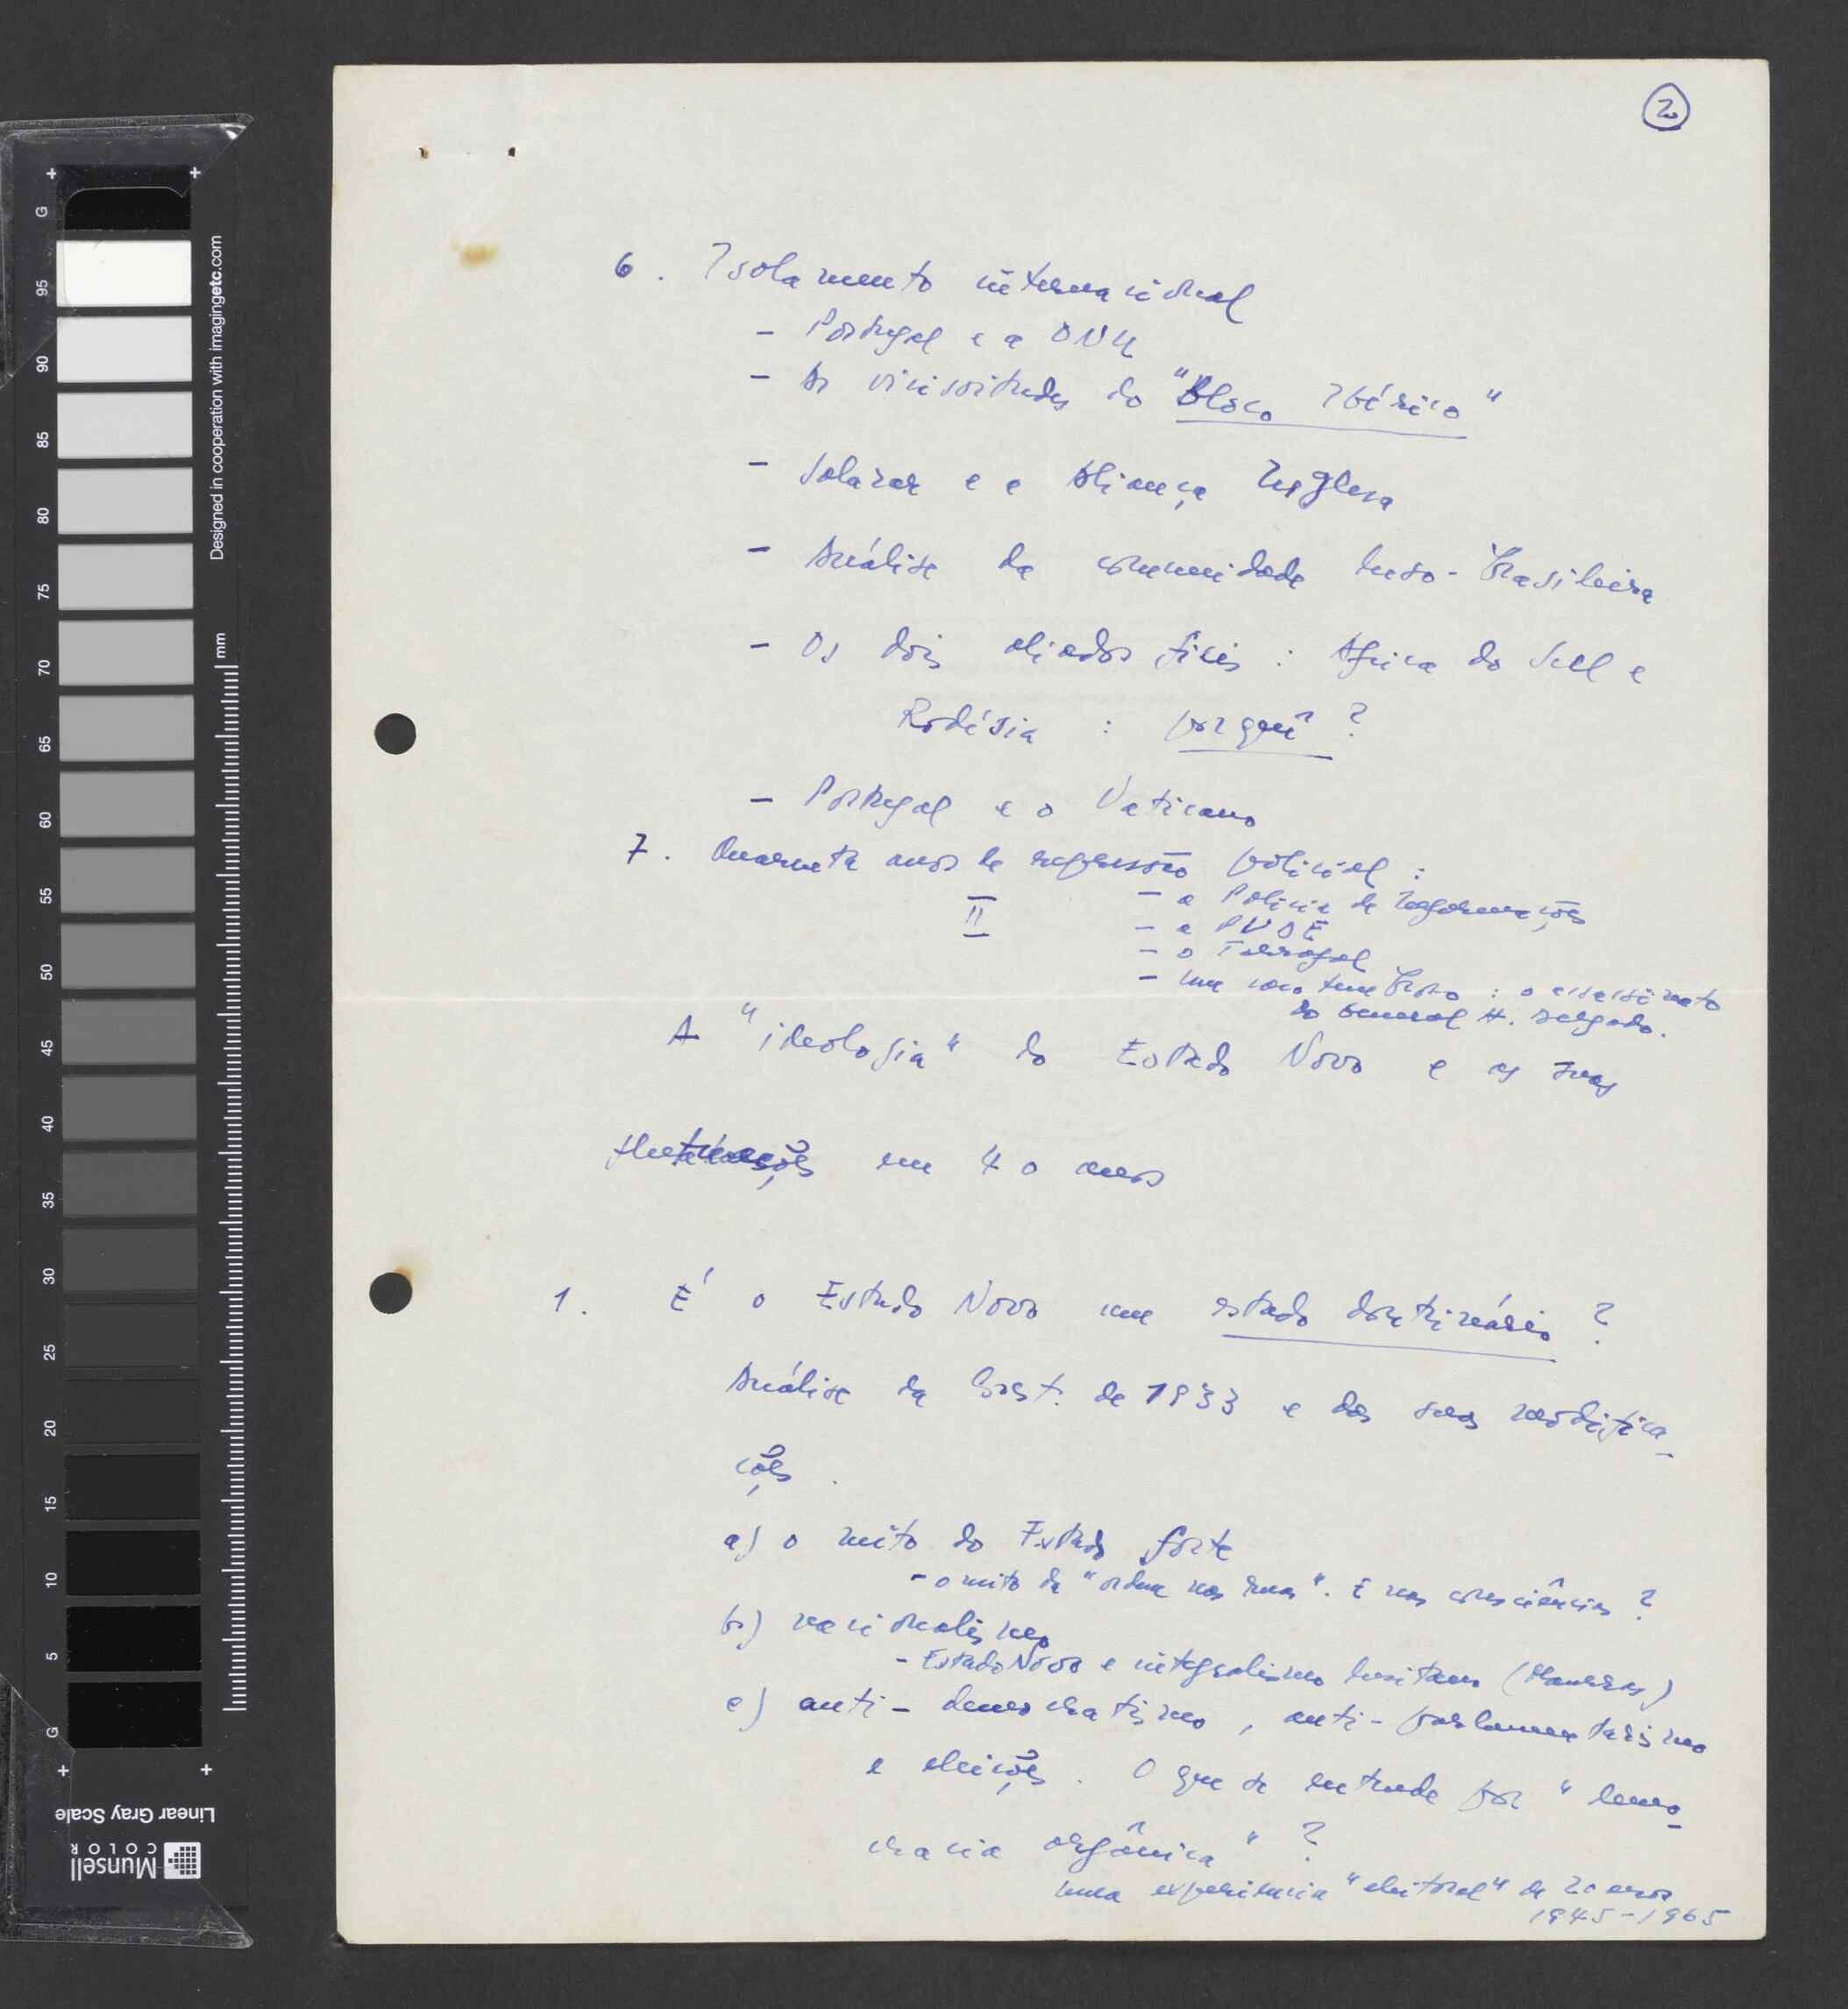 2
6. Isolamento internacional
- Portugal e a ONU
- As vicissitudes do "Bloco Ibérico"
- Salazar e a Aliança Inglesa
- Análise da comunidade luso-brasileira
- Os dois aliados fiéis : Africa do Sul e
Rodésia : porquê ?
- Portugal e o Vaticano
7. Quarenta anos de repressão policial :
- a Policia de Informações
II
- a PVDE
- o Tarrafal
- um caso tenebroso : o assassinato
do General H. Delgado.
A "ideologia" do Estado Novo e as suas
flutuações em 40 anos
1. É o Estado Novo um estado doutrinário ?
Análise da Const. de 1933 e das suas modifica-
ções.
a) o mito do Estado forte
- o mito da "ordem nas ruas". E nas consciências ?
b) nacionalismo
- Estado Novo e integralismo lusitano (Maurras)
c) anti-democratismo, anti-parlamentarismo
e eleições. O que se entende por "demo-
cracia orgânica" ?
uma experiência "eleitoral" de 20 anos
1945-1965
Designed in cooperation with imagingetc.com
mm
+ +
G
95
90
85
80
75
70
65
60
55
50
45
40
35
30
25
20
15
10
5
G
+ +
Linear Gray Scale
Munsell
COLOR